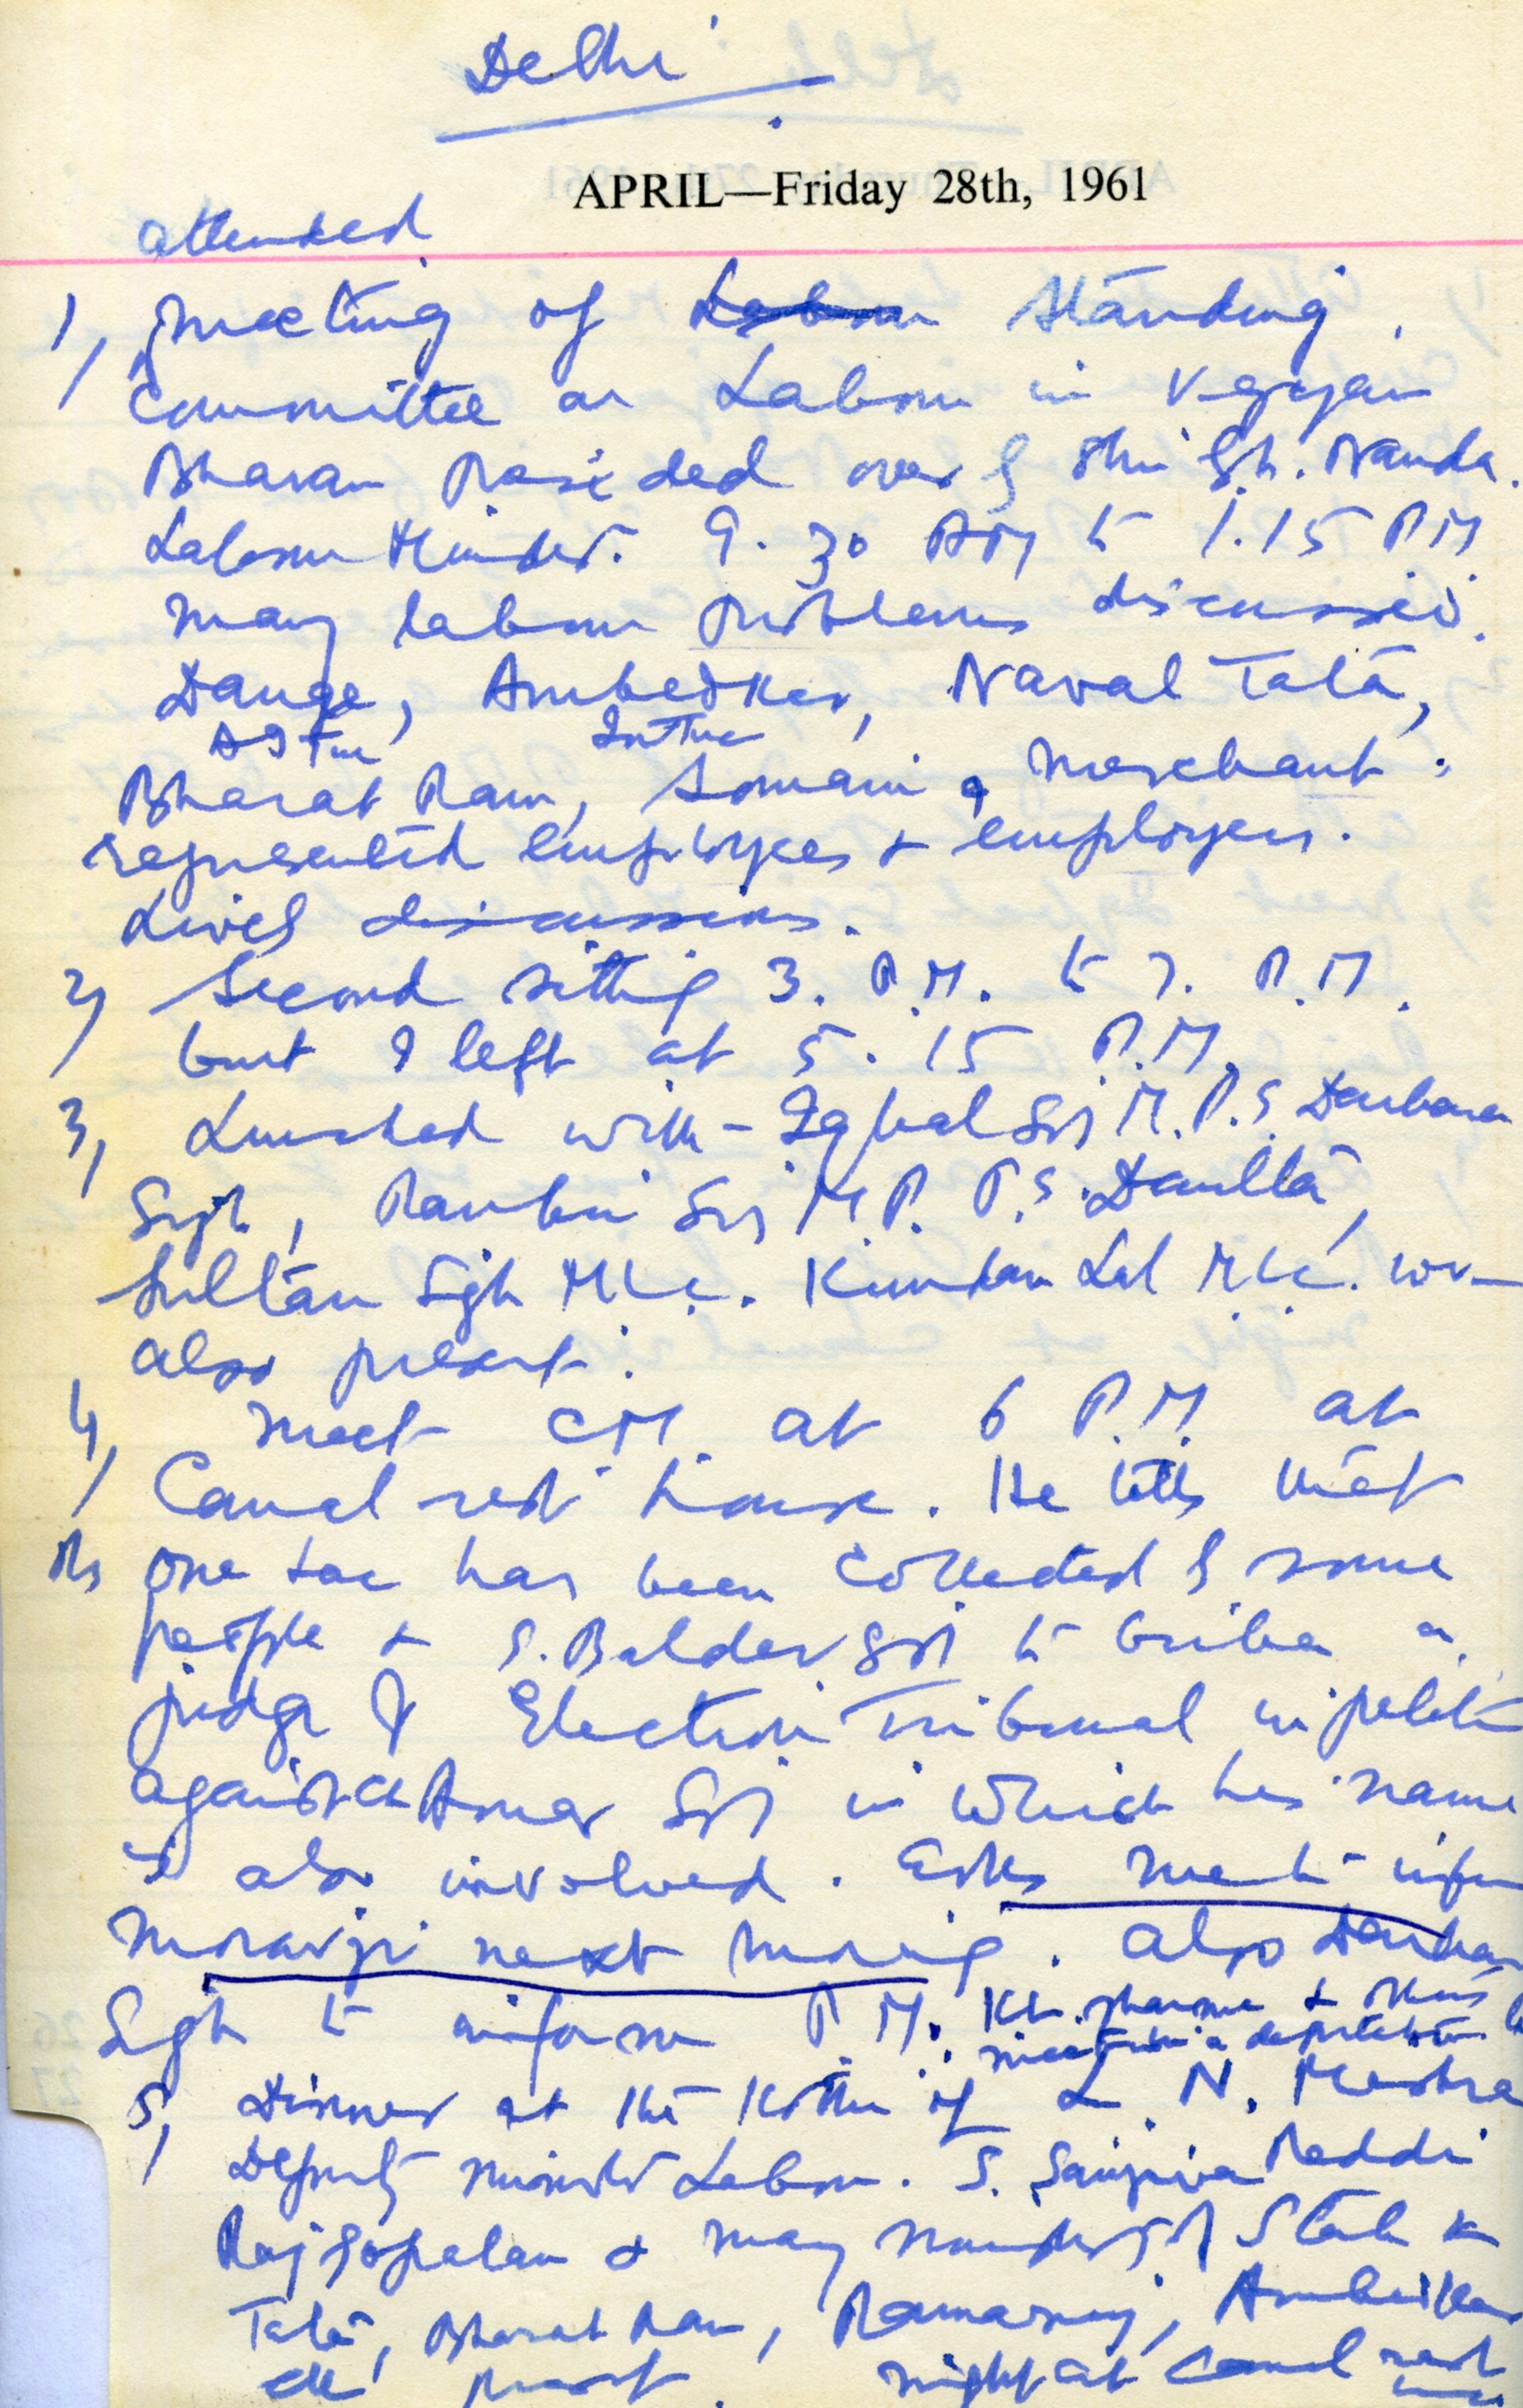 Delhi
APRIL—Friday 28th, 1961
attended
1, meeting of Labour Standing
Committee on Labour in Vigyan
Bhavan Presided over by Shri G.L. Nanda.
Labour Minister. 9.30 AM to 1.15 PM
many labour problems discussed.
Dange, Ambedker, Naval Tata,
AITUC INTUC
Bharat Ram, Somani & Merchant.
represented employees & employers.
Lively discussions.
2, Second sitting 3. P.M. to 7. P.M.
but I left at 5.15 P.M.
3, Lunched with - Iqbal Sgh M.P. S. Darbara
Sgh, Ranbir Sgh M.P. P.S. Daulta,
Sultan Sgh MLC. Kundan Lal MLC. were
also present.
4, Meet CM. at 6 P.M. at
Canal rest house. He tells that
Rs one lac has been collected by some
people & S. Baldev Sgh to bribe a
judge of Election Tribunal in petition
against Ch Amar Sgh in which his name
is also involved. Asks me to inform
Morarji next morning. Also Darbara
Sgh to inform P.M. Kh. Sharma & others
meet in a deputation.
5, Dinner at the Kothi of L. N. Meshra
Deputy Minister Labour. S. Sanjiva Reddi
Rajgopalan & many Ministers of State &
Tata, Bharat Ram, Ramanuj, Ambedker
etc present. Night at Canal rest